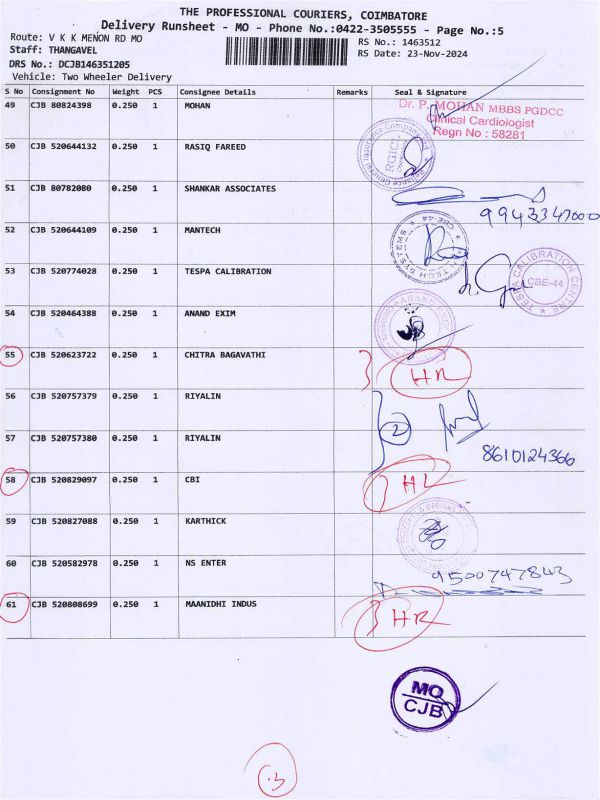 THE PROFESSIONAL COURIERS, COIMBATORE
Delivery Runsheet - MO - Phone No.:0422-3505555 - Page No.:5
Route: V K K MENON RD MO
RS No.: 1463512
Staff: THANGAVEL
RS Date: 23-Nov-2024
DRS No.: DCJB146351205
Vehicle: Two Wheeler Delivery
S No Consignment No Weight PCS Consignee Details Remarks Seal & Signature
49 CJB 80824398 0.250 1 MOHAN
Dr. P. MOHAN MBBS PGDCC
Clinical Cardiologist
Regn No : 58281
50 CJB 520644132 0.250 1 RASIQ FAREED
RGICL
51 CJB 80782080 0.250 1 SHANKAR ASSOCIATES
9943347000
52 CJB 520644109 0.250 1 MANTECH
CBE-44
TECH SYSTEMS
53 CJB 520774028 0.250 1 TESPA CALIBRATION
TESPA CALIBRATION CENTRE
CBE-44
54 CJB 520464388 0.250 1 ANAND EXIM
55 CJB 520623722 0.250 1 CHITRA BAGAVATHI
HR
56 CJB 520757379 0.250 1 RIYALIN
2
57 CJB 520757380 0.250 1 RIYALIN
8610124366
58 CJB 520829097 0.250 1 CBI
HL
59 CJB 520827088 0.250 1 KARTHICK
60 CJB 520582978 0.250 1 NS ENTER
9500747843
61 CJB 520808699 0.250 1 MAANIDHI INDUS
HR
MO
CJB
3